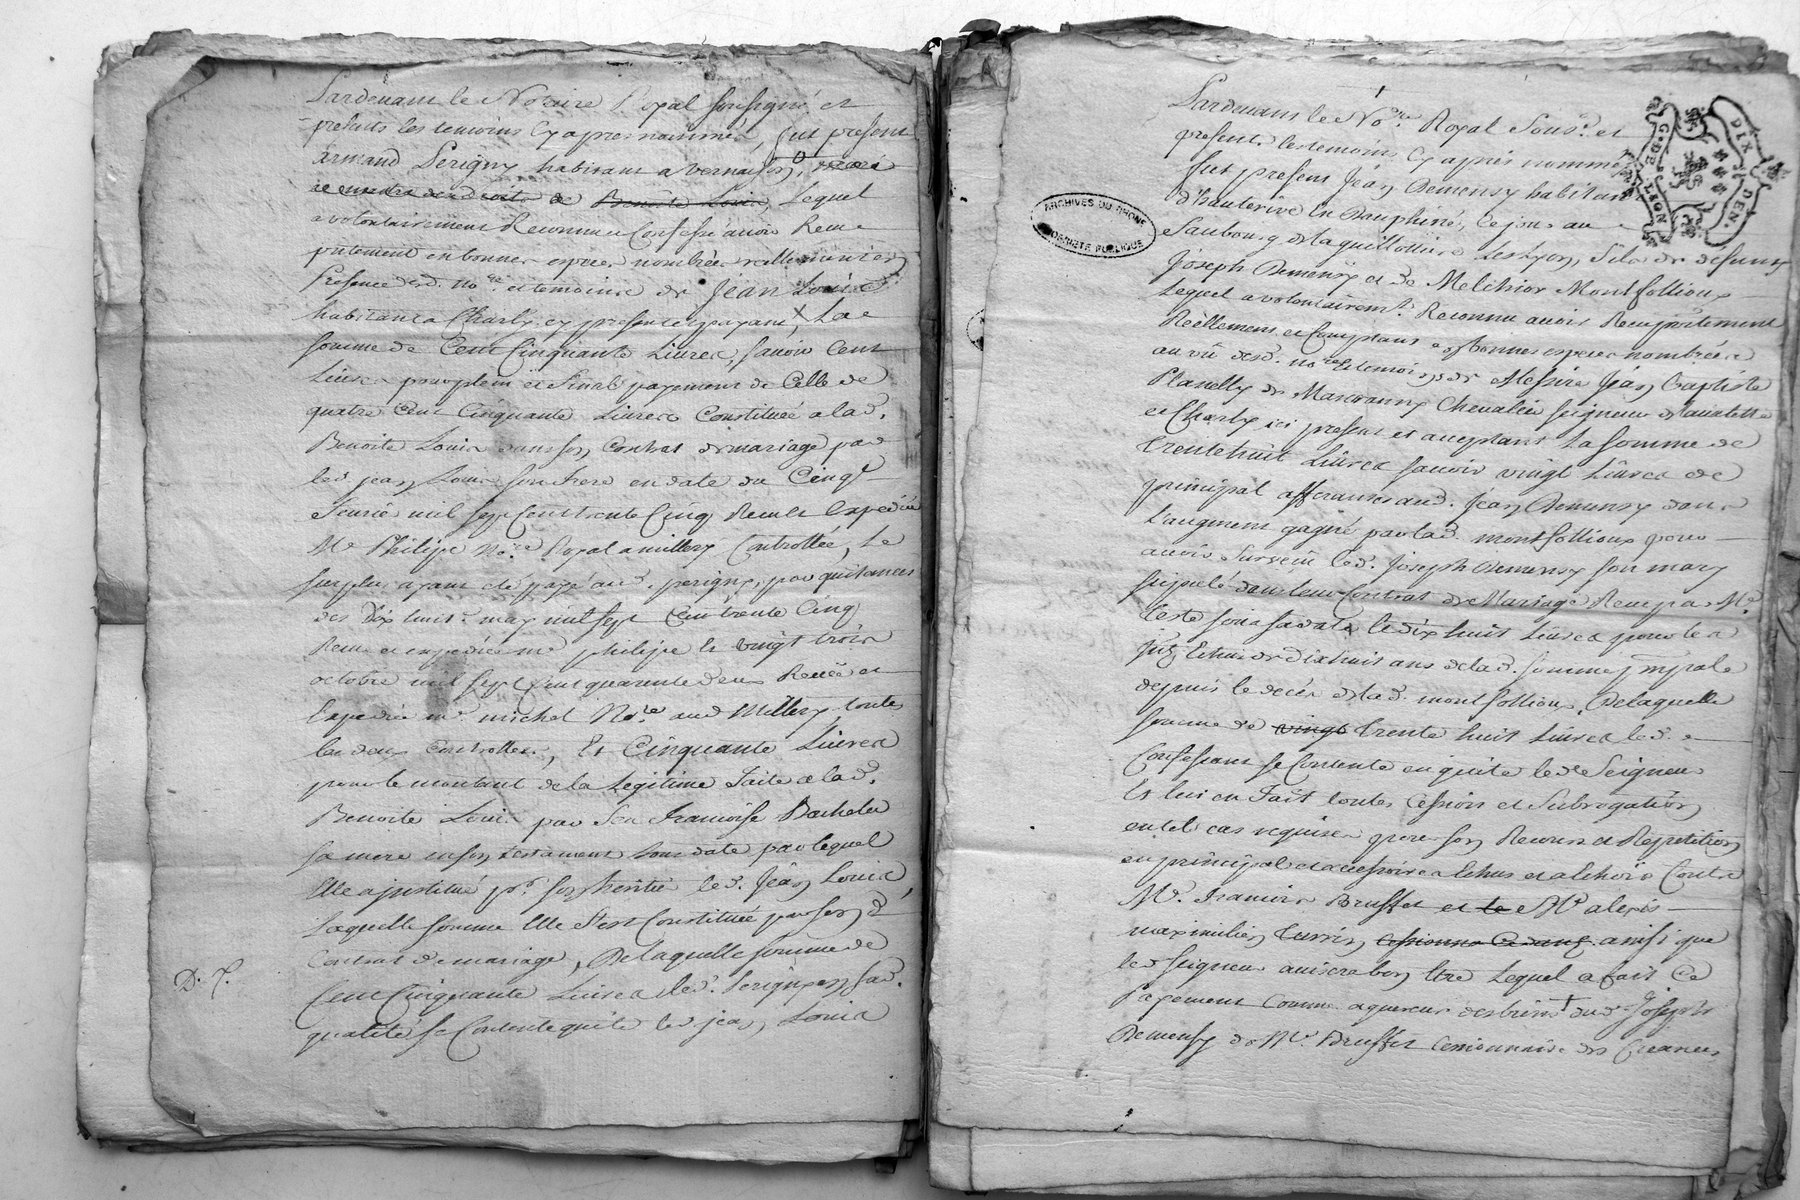 Pardevant le Notaire Royal soussigné et
presents les temoins cy apres nommés, fut present
armand Perigny habitant a vernaison, mari
de Benoite Louis, Lequel
a volontairement Reconnu et Confessé avoir Recu
putement en bonnes especes nombrées reellement en
Presence dud. no.re et temoins de Jean Louis
habitant a Charly cy present et payant, La
somme de Cent Cinquante Livres, savoir Cent
Livres pour plein et final payement de Celle de
quatre Cent Cinquante Livres Constituée a lad.
Benoite Louis dans son Contrat de mariage par
led. jean Louis son frere en date du Cinq.e
fevrier mil sept Cent trente Cinq Recu et Expedié
Me Philipe No.re Royal a millery Controllée, Le
surplus ayant eté payé aud. perigny par quitances
des Dix huit may mil sept Cent trente Cinq
Recue et expediée me philipe le vingt trois
octobre mil sept Cent quarante deux Recüe et
Expediée me michel No.re aud. Millery toutes
les deux Controllées, Et Cinquante Livres
pour le montant de la Legitime faite a lad.
Benoite Louis par feu francoise Bachelu
sa mere en son testament sous date par lequel
Elle a institué pr. son heritier led. Jean Louis,
Laquelle somme Elle s'est Constituée par son d.
Contrat de mariage, De laquelle somme de
D. P.
Cent Cinquante Livres led. Perigny en sad.
qualité se Contente quite led. jean Louis
Pardevant le No.re Royal Sous.é et
presents les temoins Cy après nommés
fut present Jean Demensy habitant
d'hauterive en Dauphiné, Ce jour au
faubourg de la guillotiere Les Lyon, fils de defunt
Joseph Demensy et de Melchior Montfollioux
Lequel a volontairemt. Reconnu avoir Recu presentement
Reellement et Comptant en bonnes especes nombrées
au vû desd. nore et temoins de Messire Jean Baptiste
Planelly de Mascranny Chevalier seigneur de la valette
et Charly ici present et acceptant La somme de
trente huit Livres savoir vingt Livres de
principal afferantes aud. Jean Demensy dans
L'augment gagné par lad. montfollioux pour
avoir survecu led. Joseph Demensy son mary
stipulé dans leur Contrat de Mariage Recu par Me
Teste sous sa date Et dix huit Livres pour les
jntz. Echus de dix huit ans de lad. somme pnpale
depuis le decés de lad. montfollioux, De laquelle
somme de vingt trente huit Livres led.
Confessant se Contente en quite led. Seigneur
Et lui en fait toutes Cessions et Subrogations
en tel cas requises pour son Recours et Repetition
en principal et accessoires Echus et a Echoir Contre
Me. francois Brusset et le Me alexis
maximilien Turrin, cessionna Ce dans ainsi que
led. seigneur avisera bon Etre Lequel a fait Ce
Payement Comme aquereur des biens + dud. Joseph
Demensy de Me. Brusset Cessionnaire des Creanciers
ARCHIVES DU RHONE
PROPRIÉTÉ PUBLIQUE
G. DE LYON
DIX DEN.